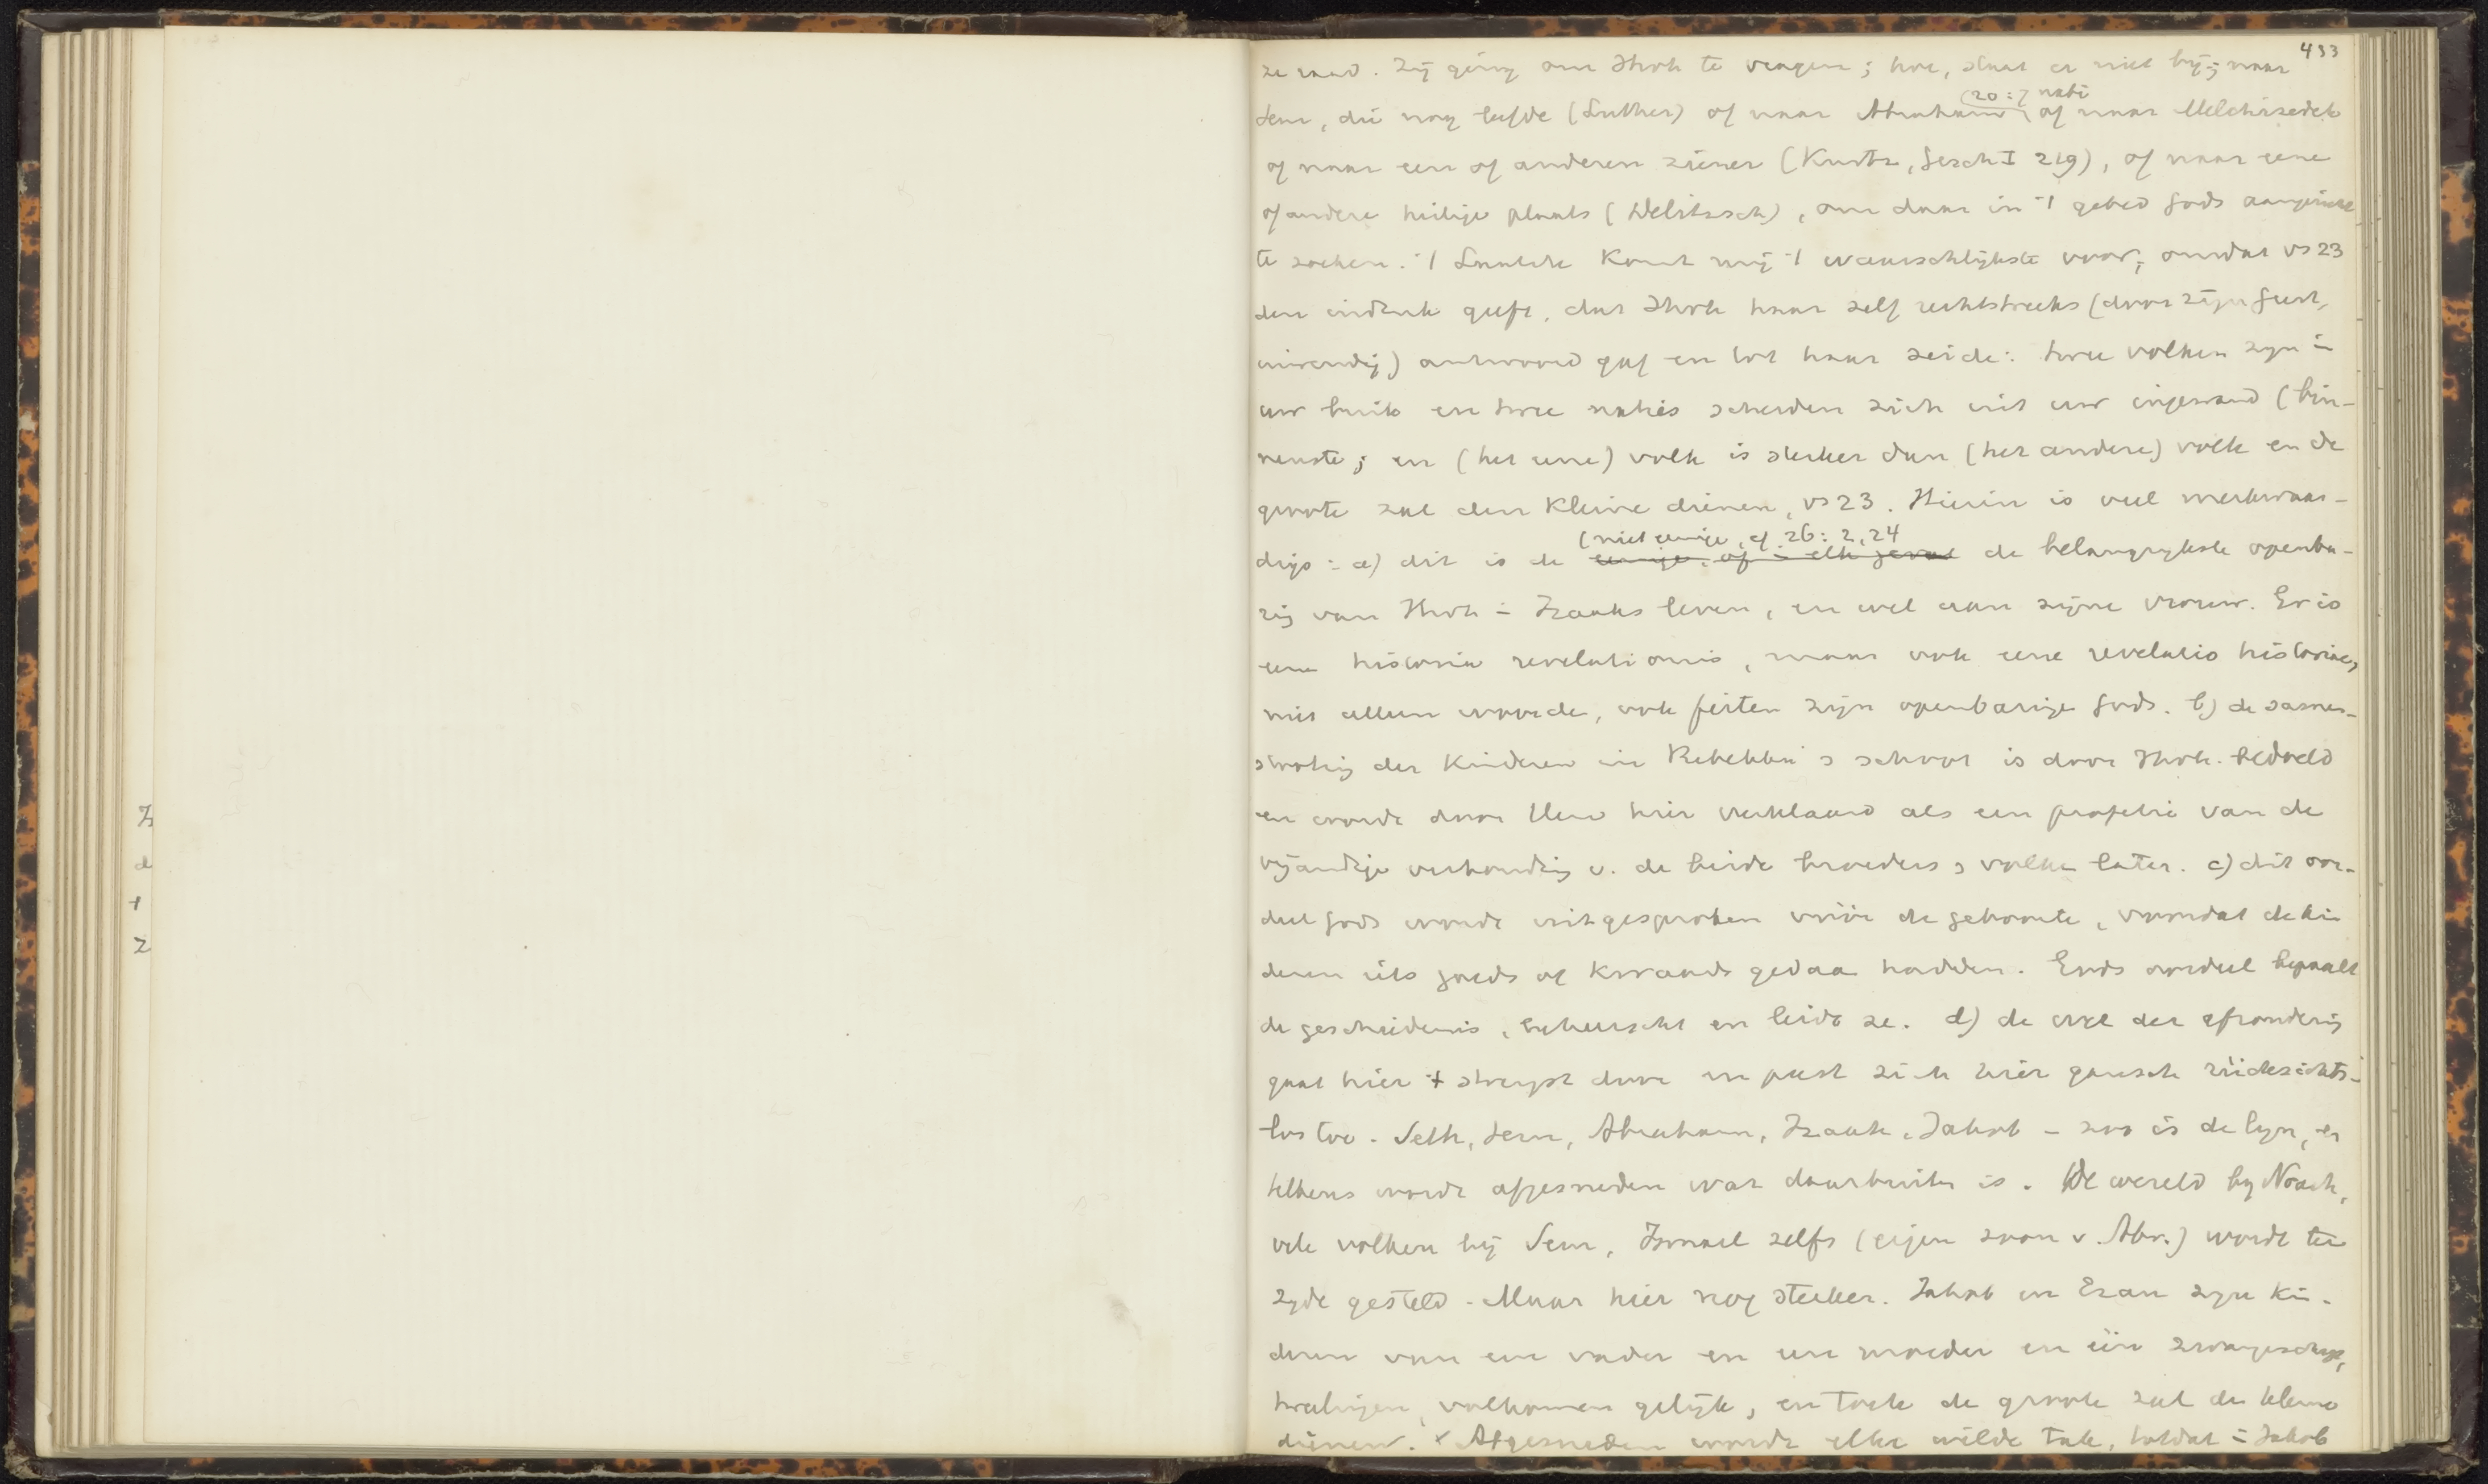 433
ze raad. Zij ging om Jhvh te vragen; hoe, staat er niet bij; naar
(20:7 nabi
Sem, die nog leefde (Luther) of naar Abraham, of naar Melchizedek
of naar een of anderen ziener (Kurtz, Gesch I 219), of naar eene
of andere heilige plaats (Delitzsch), om daar in 't gebed Gods aangezicht
te zoeken. 't Laatste komt mij 't waarschlijkste voor, omdat vs 23
den indruk geeft, dat Jhvh haar zelf rechtstreeks (door zijn Geest,
inwendig) antwoord gaf en tot haar zeide: twee volken zijn in
uw buik en twee naties scheiden zich uit uw ingewand (bin-
nenste; en (het eene) volk is sterker dan (het andere) volk en de
groote zal den kleine dienen, vs 23. Hierin is veel merkwaar-
(niet eenige, cf. 26: 2, 24
digs: a) dit is de eenige, of in elk geval de belangrijkste openba-
rig van Jhvh in Izaaks leven, en wel aan zijne vrouw. Er is
eene historia revelationis, maar ook eene revelatio historiae,
niet alleen woorde, ook feiten zijn openbarige Gods. b) de samen-
stootig der kinderen in Rebekka's schoot is door Jhvh. bedoeld
en wordt door Hem hier verklaard als een profetie van de
vijandige verhoudig v. de beide broeders & volke later. c) dit oor-
deel Gods wordt uitgesproken vóór de geboorte, voordat de kin
deren iets goeds of kwaads gedaa hadden. Gods oordeel bepaalt
de geschiedenis, beheerscht en leidt ze. d) de wet der afzonderig
gaat hier 't strengst door en past zich hier gansch rücksichts-
los toe. Seth, Sem, Abraham, Izaak, Jakob - zoo is de lijn, en
telkens wordt afgesneden wat daarbuite is. De wereld bij Noach,
vele volken bij Sem, Ismael zelfs (eigen zoon v. Abr.) wordt ter
zijde gesteld. Maar hier nog sterker. Jakob en Ezau zijn kin-
deren van een vader en een moeder en één zwangerschap,
tweelingen, volkomen gelijk, en toch de groote zal de kleine
dienen. × Afgesneden wordt elke wilde tak, totdat in Jakob
Iz
d
t
z